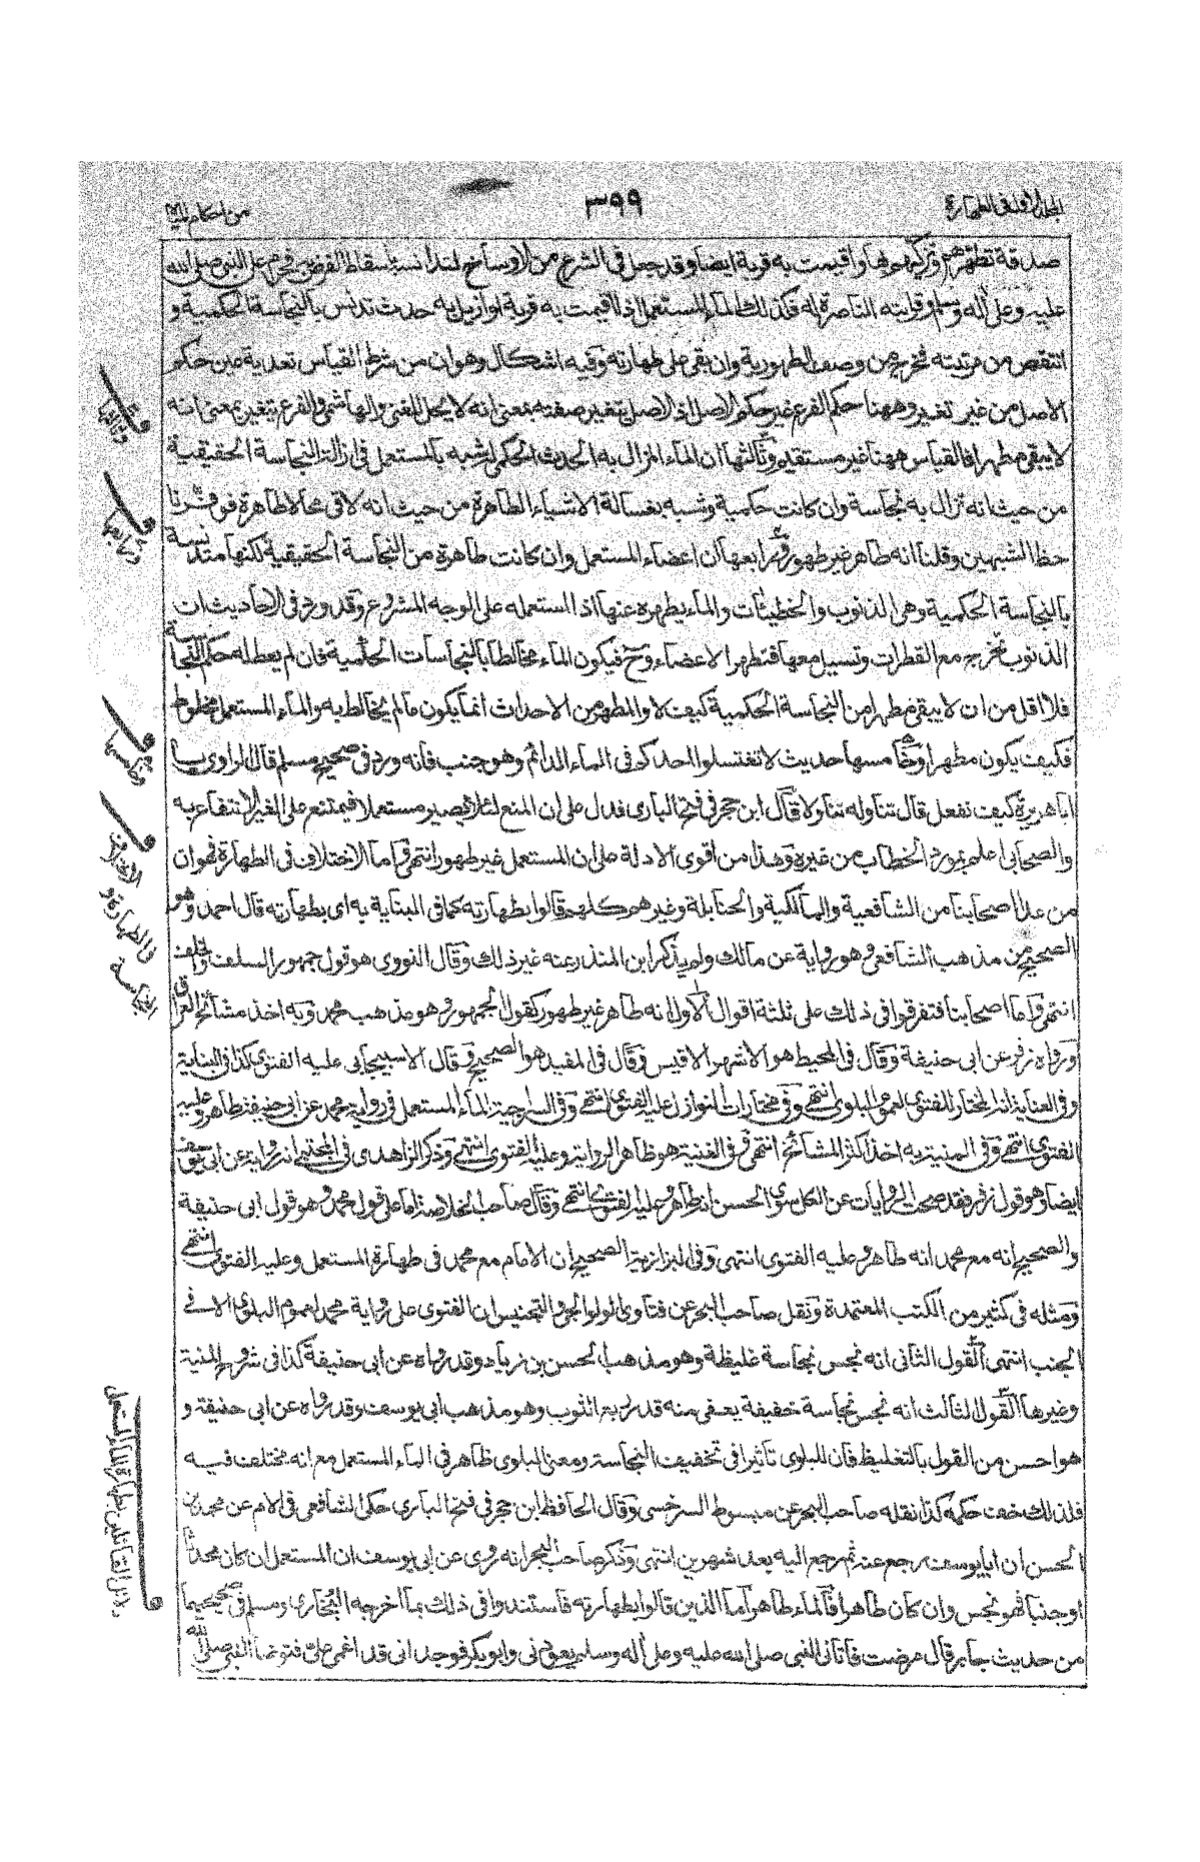 المجلد الاول فى الطهارة
٣٩٩
من احكام المياه
صدقة تطهرهم وتزكيهم بها واقيمت به قربة ايضا وقد جعل فى الشرع من الاوساخ لتدنسه باسقاط الفرض فحرم على النبى صلى الله
عليه وعلى أله وسلم وقرابته الناصرة له فكذلك الماء المستعمل اذا اقيمت به قربة او ازيل به حدث تدنس بالنجاسة الحكمية و
انتقص من مرتبته فخرج من وصف الطهورية وان بقى على طهارته وفيه اشكال وهو ان من شرط القياس تعدية عين حكم
الاصل من غير تغير وههنا حكم الفرع غير حكم الاصل اذ الاصل بتغير صفته بمعنى انه لا يحل للغنى والهاشمى والفرع بتغير بمعنى انه
لا يبقى مطهرا فالقياس ههنا غير مستقيم وثالثها ان الماء المزال به الحدث الحكمى اشبه بالمستعمل فى ازالة النجاسة الحقيقية
من حيث انه تزال به نجاسة وان كانت حكمية وشبه بغسالة الاشياء الطاهرة من حيث انه لاقى محلا طاهرة فوفرنا
حظ الشبهين وقلنا انه طاهر غير طهور ورابعها ان اعضاء المستعمل وان كانت طاهرة من النجاسة الحقيقية لكنها متدنسة
بالنجاسة الحكمية وهى الذنوب والخطيئات والماء يطهره عنها اذا استعمله على الوجه المشروع وقد ورد فى الاحاديث ان
الذنوب تخرج مع القطرات وتسيل معها فتطهر الاعضاء وح فيكون الماء مخالطا بالنجاسات الحكمية فان لم يعط له حكم النجاسة
فلا اقل من ان لا يبقى مطهرا من النجاسة الحكمية كيف لا والمطهر من الاحداث انما يكون ما لم يخالط به والماء المستعمل مخلوط
فكيف يكون مطهرا وخامسها حديث لا تغتسلوا احدكم فى الماء الدائم وهو جنب فانه ورد فى صحيح مسلم قال الراوى يا
ابا هريرة كيف نفعل قال تناوله تناولا قال ابن حجر فى فتح البارى فدل على ان المنع لئلا يصير مستعملا فيمتنع على الغير الانتفاع به
والصحابى اعلم بمورد الخطاب من غيره وهذا من اقوى الادلة على ان المستعمل غير طهور انتهى واما الاختلاف فى الطهارة فهو ان
من عدا اصحابنا من الشافعية والمالكية والحنابلة وغيرهم كلهم قالوا بطهارته كما فى البناية به اى بطهارته قال احمد وهو
الصحيح من مذهب الشافعى وهو رواية عن مالك ولم يذكر ابن المنذر عنه غير ذلك وقال النووى هو قول جمهور السلف والخلف
انتهى واما اصحابنا فتفرقوا فى ذلك على ثلثة اقوال الاول انه طاهر غير طهور كقول الجمهور وهو مذهب محمد وبه اخذ مشائخ العراق
ورواه زفر عن ابى حنيفة وقال فى المحيط هو الاشهر الاقيس وقال فى المفيد هو الصحيح وقال الاسبيجابى عليه الفتوى كذا فى البناية
وفى العناية انه المختار للفتوى لعموم البلوى انتهى وفى مختارات النوازل عليه الفتوى انتهى وفى السراجية الماء المستعمل فى رواية محمد عن ابى حنيفة طاهر وعليه
الفتوى انتهى وفى المنية به اخذ اكثر المشائخ انتهى وفى القنية هو ظاهر الرواية وعليه الفتوى انتهى وذكر الزاهدى فى المجتبى انه رواية عن ابى يوسف
ايضا وهو قول زفر فقد صحت الروايات عن الكل سوى الحسن انه طاهر وعليه الفتوى انتهى وقال صاحب الخلاصة اما على قول محمد وهو قول ابى حنيفة
والصحيح انه مع محمد انه طاهر وعليه الفتوى انتهى وفى البزازية الصحيح ان الامام مع محمد فى طهارة المستعمل وعليه الفتوى انتهى
ومثله فى كثير من الكتب المعتمدة ونقل صاحب البحر عن فتاوى الولوالجى والتجنيس ان الفتوى على رواية محمد لعموم البلوى الا فى
الجنب انتهى القول الثانى انه نجس نجاسة غليظة وهو مذهب الحسن بن زياد وقد رواه عن ابى حنيفة كذا فى شروح المنية
وغيرها القول الثالث انه نجس نجاسة خفيفة يعفى منه قدر ربع الثوب وهو مذهب ابى يوسف وقد رواه عن ابى حنيفة و
هو احسن من القول بالتغليظ فان للبلوى تاثيرا فى تخفيف النجاسة ومعنى البلوى ظاهر فى الماء المستعمل مع انه مختلف فيه
فلذلك خف حكمه كذا نقله صاحب البحر عن مبسوط السرخسى وقال الحافظ ابن حجر فى فتح البارى حكى الشافعى فى الام عن محمد بن
الحسن ان ابا يوسف رجع عنه ثم رجع اليه بعد شهرين انتهى وذكر صاحب البحر انه روى عن ابى يوسف ان المستعمل ان كان محدثا
او جنبا فهو نجس وان كان طاهرا فالماء طاهر اما الذين قالوا بطهارته فاستندوا فى ذلك بما اخرجه البخارى ومسلم فى صحيحيهما
من حديث جابر قال مرضت فاتانى النبى صلى الله عليه وعلى أله وسلم يعودنى وابو بكر فوجدانى قد اغمى على فتوضأ النبى صلى الله
وثالثها
ورابعها
وخامسها
الاختلاف
فى الطهارة و
النجاسة
دلائل القائلين بطهارة الماء المستعمل